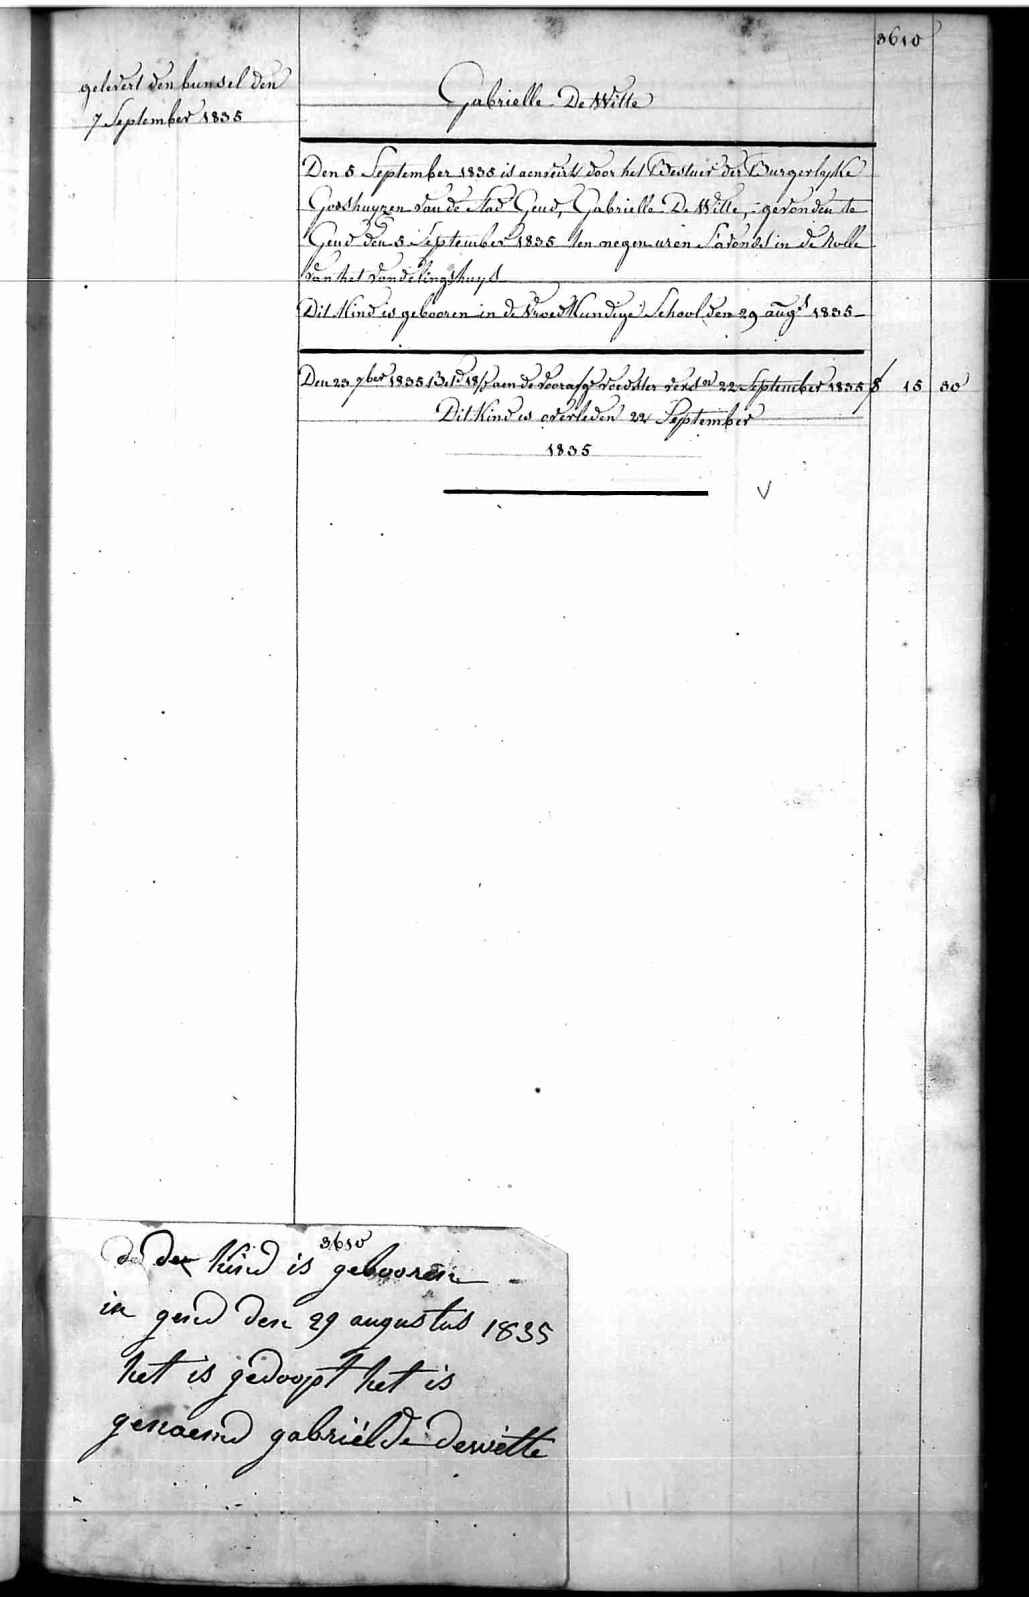 3610
gelevert den bunsel den
7 September 1835
Gabrielle De Witte
Den 5 September 1835 is aenveirt door het Bestuer der Burgerlyke
Godshuyzen van de Stad Gend, Gabrielle De Witte, gevonden te
Gend den 5 September 1835 ten negen uren S'avonds in de Rolle
van het vondelingshuys
Dit Kind is gebooren in de Vroedkundige School den 29 augt 1835
Den 23 7ber 1835 Betd aen de voorafge voedster 22 September 1835 15 30
Dit Kind is overleden 22 September
1835
3610
de der kind is gebooren
in gend den 29 augustus 1835
het is gedoopt het is
genaemd gabriëlde dewitte